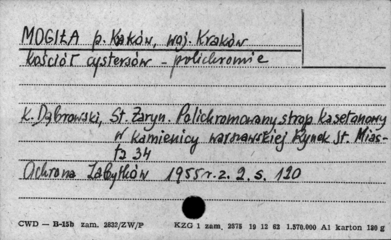 MOGIŁA p. Kraków, woj. Kraków
kościół cystersów - polichromie
K. Dąbrowski, St. Żaryn. Polichromowany strop kasetonowy
w kamienicy warszawskiej Rynek St. Mias-
ta 34
Ochrona Zabytków 1955 r. z. 2. s. 120
CWD — B-15b zam. 2832/ZW/P KZG 1 zam. 2675 19 12 62 1.570.000 A1 karton 180 g